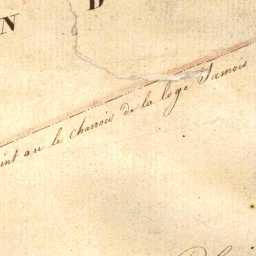 N D
int au le charrois de la loge Samois